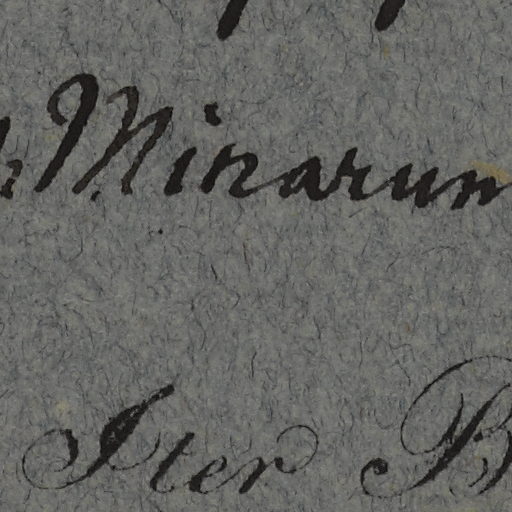 Minarum
Iter B